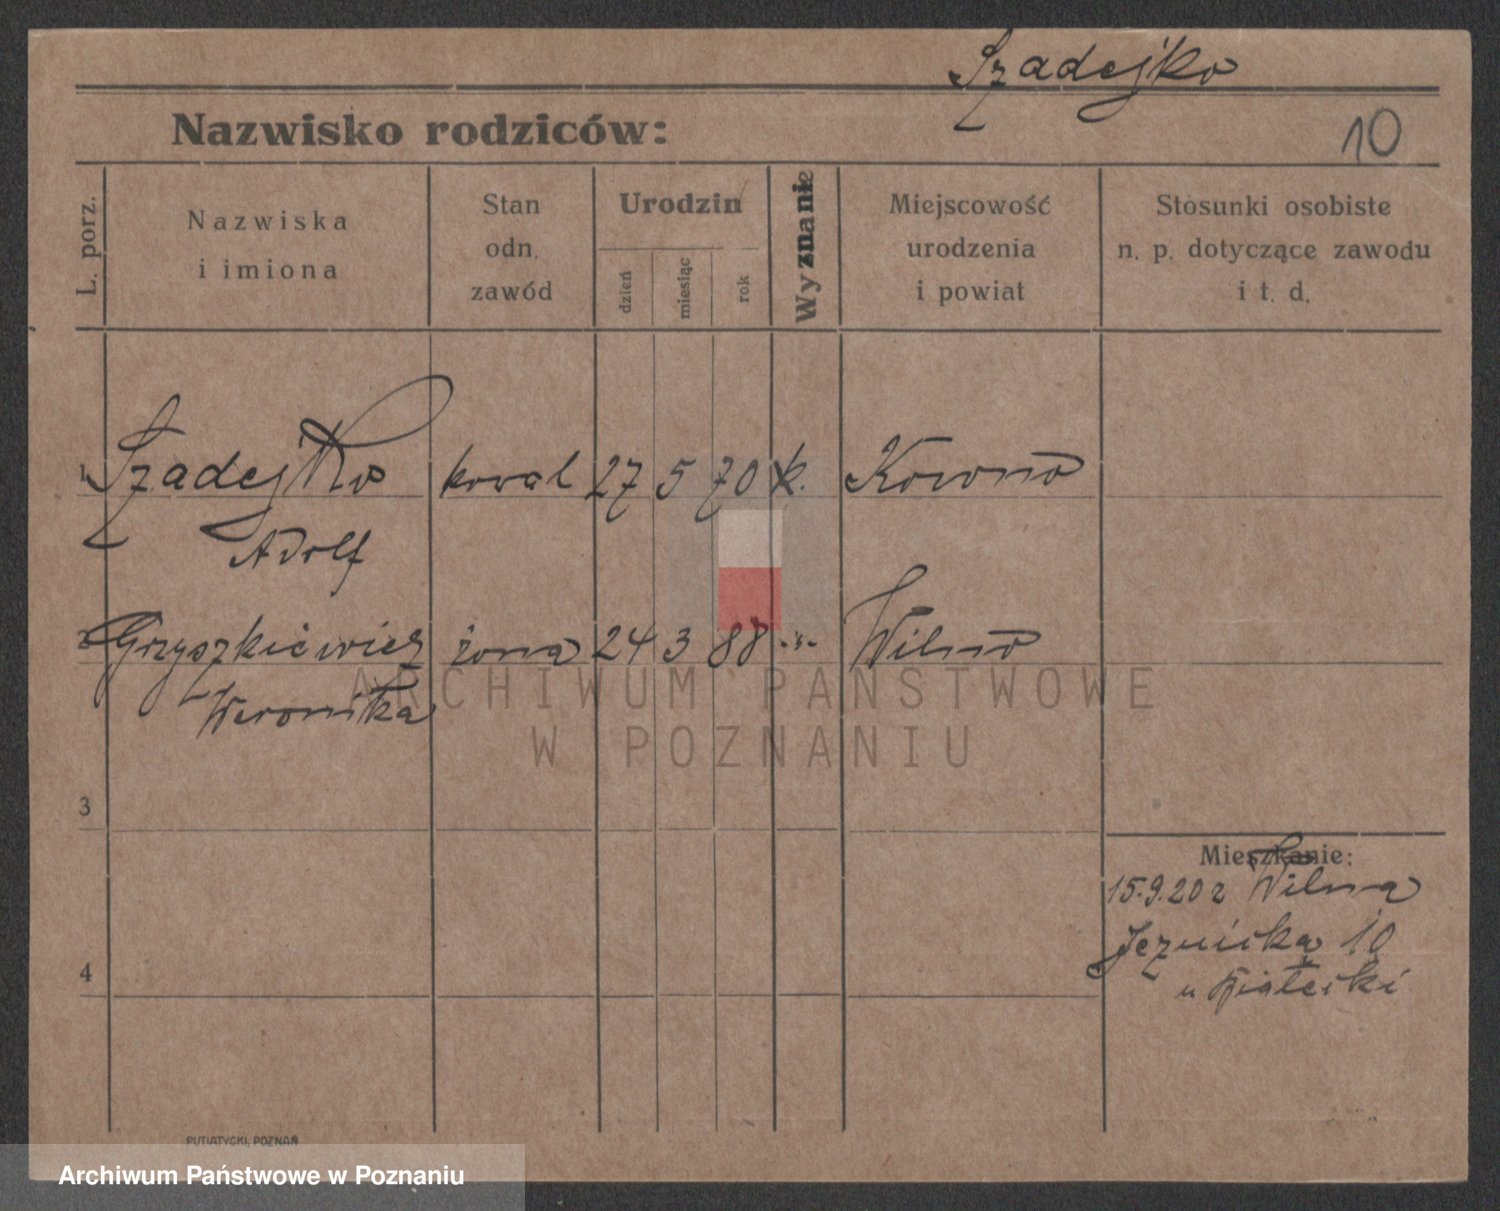 Szadejko
Nazwisko rodziców:
10
L. porz.
Nazwiska
i imiona
Stan
odn.
zawód
Urodzin
dzień
miesiąc
rok
Wyznanie
Miejscowość
urodzenia
i powiat
Stosunki osobiste
n. p. dotyczące zawodu
i t. d.
1 Szadejko kowal 27 5 70 k. Kowno
Adolf
2 Gryszkiewicz żona 24 3 88 -"- Wilno
Weronika
ARCHIWUM PAŃSTWOWE
W POZNANIU
3
Mieszkanie:
15.9.20 r Wilna
10
4
u
PUTIATYCKI, POZNAŃ
Archiwum Państwowe w Poznaniu